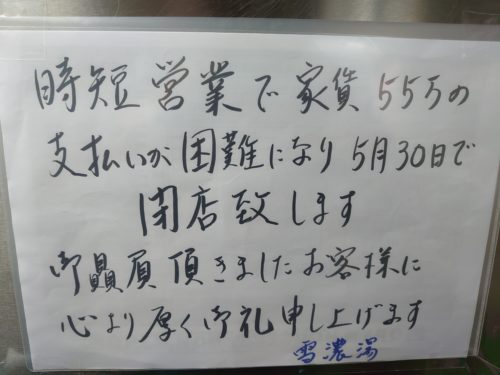 時短営業で家賃55万の
支払いが困難になり5月30日で
閉店致します
御贔屓頂きましたお客様に
心より厚く御礼申し上げます
雪濃湯